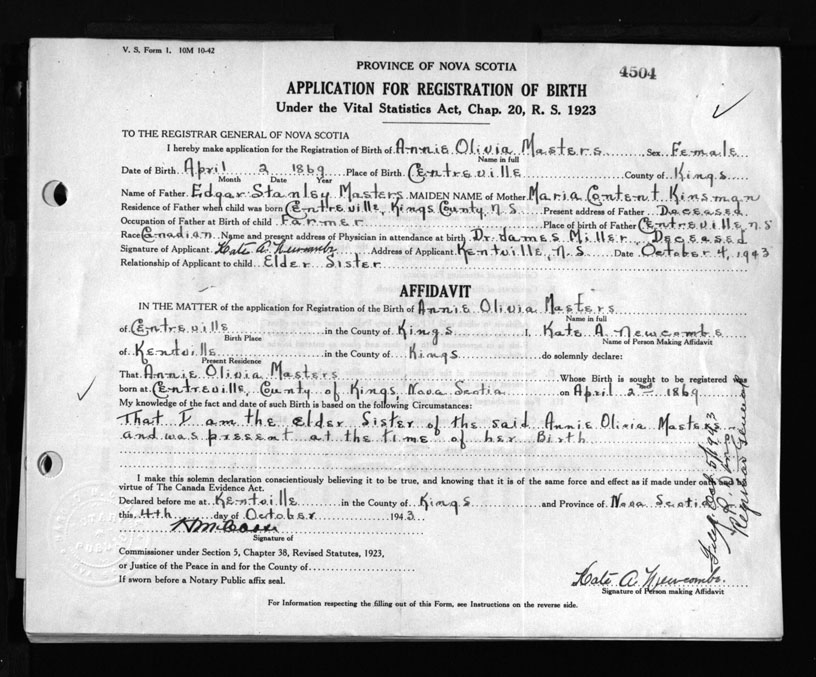 V. S. Form 1. 10M 10-42
PROVINCE OF NOVA SCOTIA
4504
APPLICATION FOR REGISTRATION OF BIRTH
Under the Vital Statistics Act, Chap. 20, R. S. 1923
TO THE REGISTRAR GENERAL OF NOVA SCOTIA
I hereby make application for the Registration of Birth of Annie Olivia Masters Sex Female
Name in full
Date of Birth April 2 1869 Place of Birth Centreville County of Kings
Month Date Year
Name of Father Edgar Stanley Masters MAIDEN NAME of Mother Maria Content Kinsman
Residence of Father when child was born Centreville, Kings County, N.S. Present address of Father Deceased
Occupation of Father at Birth of child Farmer Place of birth of Father Centreville, N.S
Race Canadian Name and present address of Physician in attendance at birth Dr. James Miller, Deceased
Signature of Applicant Kate A. Newcombe Address of Applicant Kentville, N.S. Date October 4, 1943
Relationship of Applicant to child Elder Sister
AFFIDAVIT
IN THE MATTER of the application for Registration of the Birth of Annie Olivia Masters
Name in full
of Centreville in the County of Kings I, Kate A. Newcombe
Birth Place Name of Person Making Affidavit
of Kentville in the County of Kings do solemnly declare:
Present Residence
That Annie Olivia Masters Whose Birth is sought to be registered was
born at Centreville, County of Kings, Nova Scotia on April 2nd 1869
My knowledge of the fact and date of such Birth is based on the following Circumstances:
That I am the Elder Sister of the said Annie Olivia Masters
and was present at the time of her Birth
I make this solemn declaration conscientiously believing it to be true, and knowing that it is of the same force and effect as if made under oath and by
virtue of The Canada Evidence Act.
Declared before me at Kentville in the County of Kings and Province of Nova Scotia
this 4th day of October 1943
Signature of
Commissioner under Section 5, Chapter 38, Revised Statutes, 1923,
or Justice of the Peace in and for the County of
If sworn before a Notary Public affix seal.
Kate A. Newcombe
Signature of Person making Affidavit
For Information respecting the filling out of this Form, see Instructions on the reverse side.
Registrar General